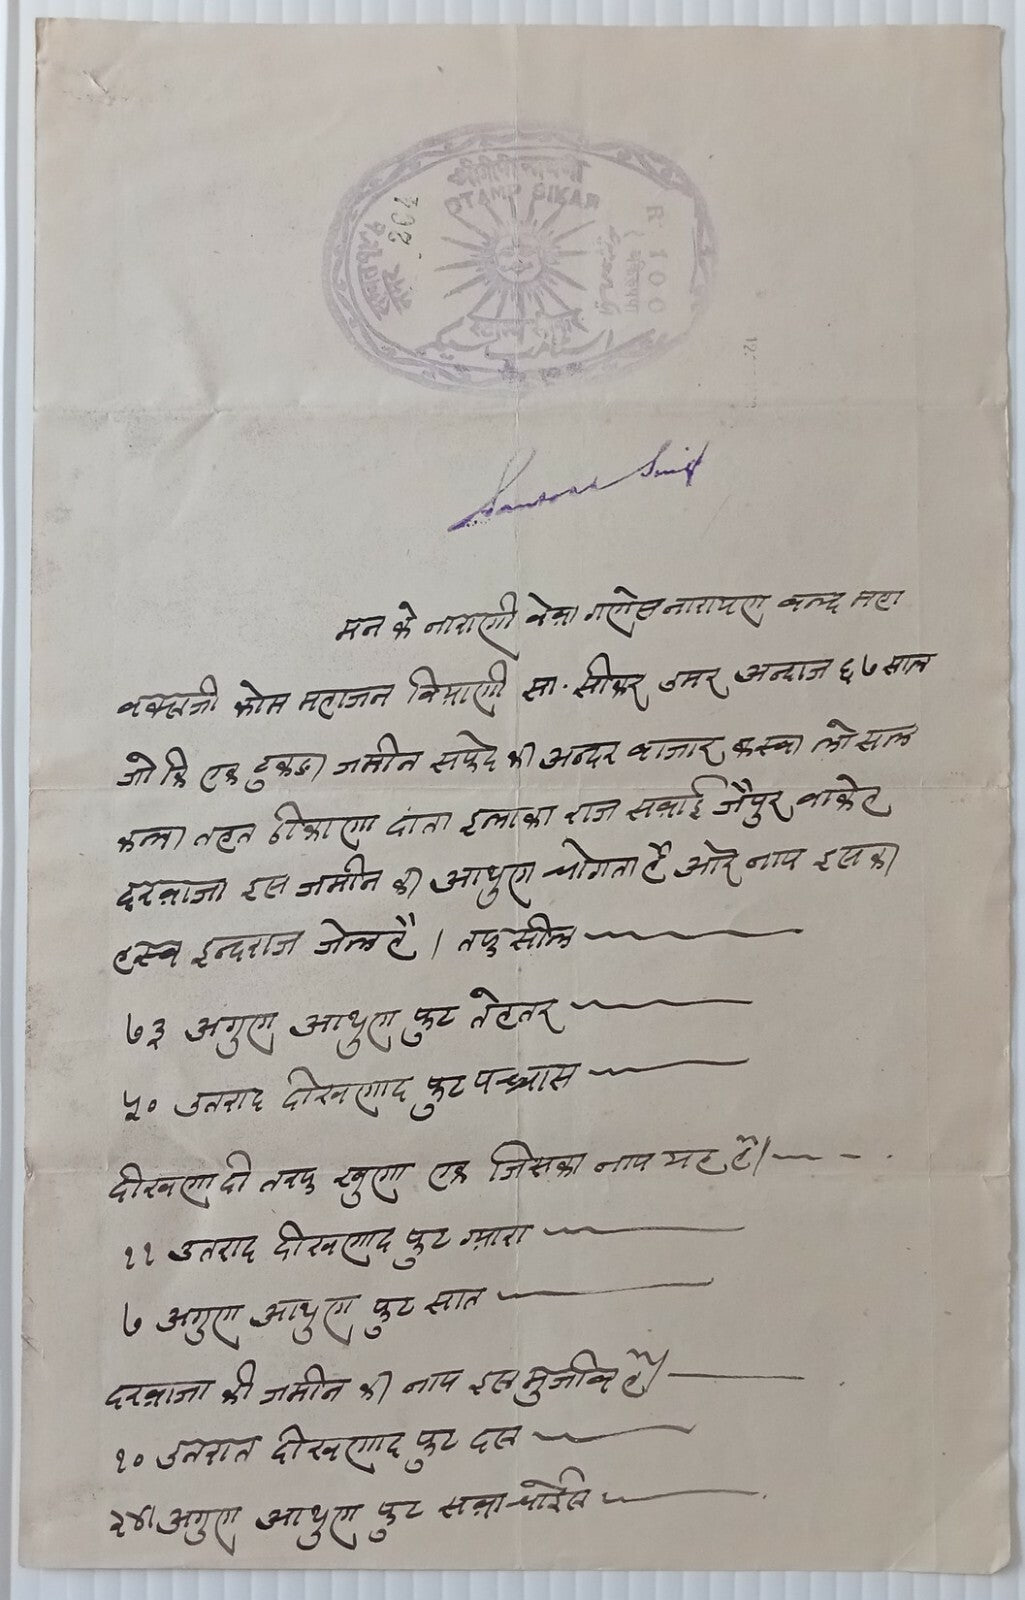 श्रीगोपीनाथजी
STAMP SIKAR
R 100
204
Sanwar Singh
मन के नाराणी बेवा गणेस नारायण वल्द महा
बक्सजी कोम महाजन बियाणी सा. सीकर उमर अन्दाज ६७ साल
जो कि एक टुकडा जमीन सफेद की अन्दर बाजार कस्बा लोसाल
कला तहत ठीकाणा दांता इलाका राज सवाई जैपुर वाकेह
दरवाजा इस जमीन की आथुण चोगता है ओर नाप इस की
हस्ब इन्दराज जेल है । तफसील
७३ अगुण आथुण फुट तेहतर
५० उतराद दीखणाद फुट पच्चास
दीखणादी तरफ खुणा एक जिसका नाप यह है।
११ उतराद दीखणाद फुट ग्यारा
७ अगुण आथुण फुट सात
दरवाजा की जमीन की नाप इस मुजीब है।
१० उतरात दीखणाद फुट दस
२४। अगुण आथुण फुट सवा चोईस